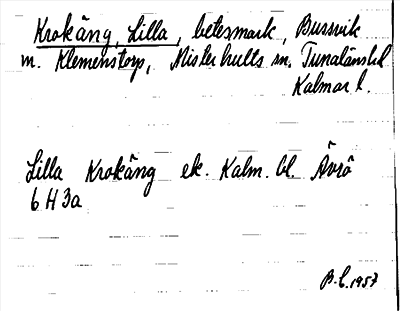 Krokäng, Lilla, betesmark, Bussvik
m. Klemenstorp, Misterhults sn, Tunaläns hd
Kalmar l.
Lilla Krokäng ek. Kalm. bl. Ävrö
6 H 3a
B.L. 1957